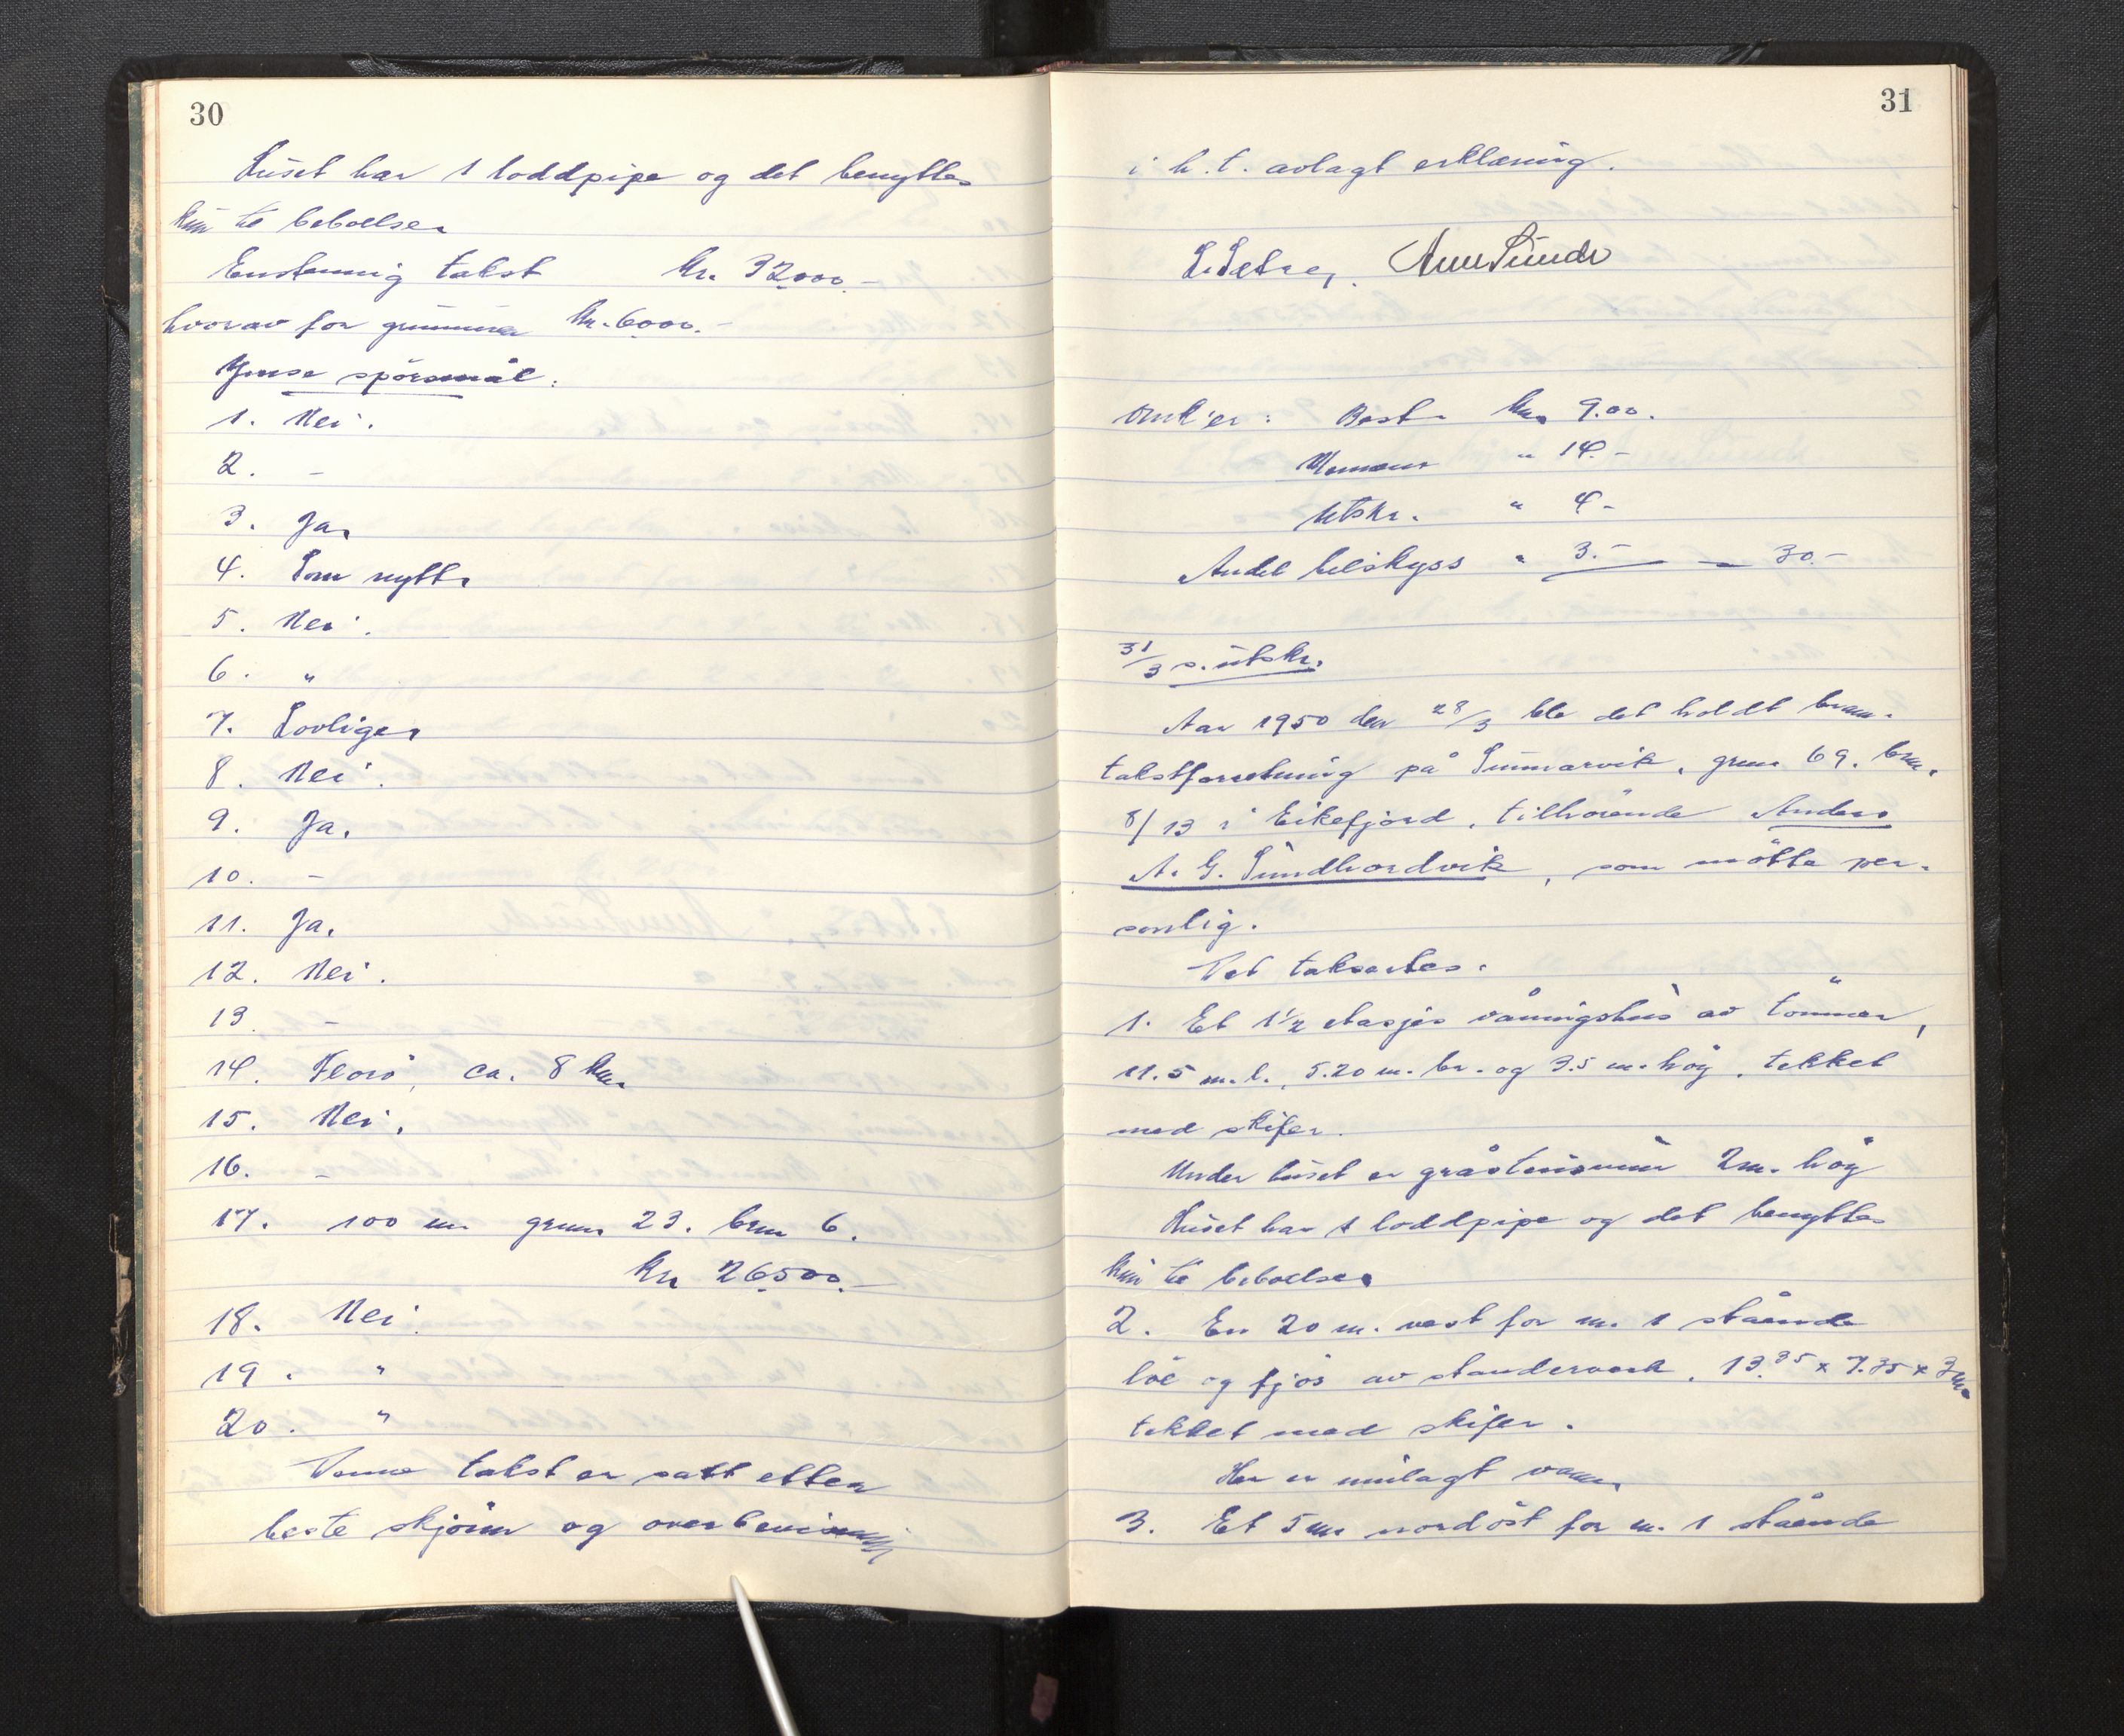 30
Huset har 1 loddpipe og det benyttes
kun til beboelse.
Enstemmig takst kr. 32000.-
hvorav for grunnmur kr. 6000.-
Ymse spörsmål:
1. Nei.
2. -
3. Ja.
4. Som nytt.
5. Nei.
6. "
7. Lovlige.
8. Nei.
9. Ja.
10. -
11. Ja.
12. Nei.
13. -
14. Florö, ca. 8 km.
15. Nei.
16. -
17. 100 m. grnr. 23. brnr 6.
kr. 26500.-
18. Nei.
19. "
20. "
Denne takst er satt etter
beste skjönn og overbevisning
31
i h.t. avlagt erklæring.
L. Sætre,
Omk'er: Best. kr. 9.00.
" 14.-
Utskr. " 4.-
Andel bilskyss " 3.- 30.-
31/3 s. utskr.
Aar 1950 den 28/3 ble det holdt bran-
takstforretning på Sunnarvik, grnr. 69. brnr.
8/13 i Eikefjord, tilhörende Anders
A. G. Sundhordvik, som mötte per-
sonlig.
Det taksertes:
1. Et 1½ etasjes våningshus av tömmer,
11.5 m. l., 5.20 m. br. og 3.5 m. höy, tekket
med skifer.
Under huset er gråsteinsmur 2 m. höy
Huset har 1 loddpipe og det benyttes
kun til beboelse.
2. En 20 m. vest for nr. 1 stående
löe og fjös av stenderverk, 13.35 x 7.35 x 3 m.
tekket med skifer.
Her er innlagt vann.
3. Et 5 m. nordöst for nr. 1 stående